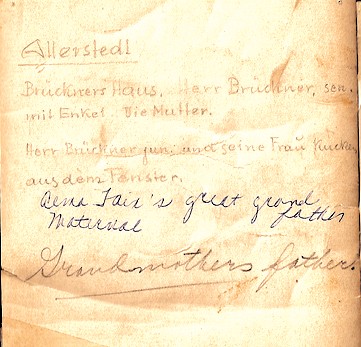 Allerstedt
Brückners Haus. Herr Brückner, sen.
mit Enkel. Die Mutter.
Herr Brückner jun. und seine Frau kucken
aus dem Fenster.
Tair's great grand
father
maternal
Grandmothers father.